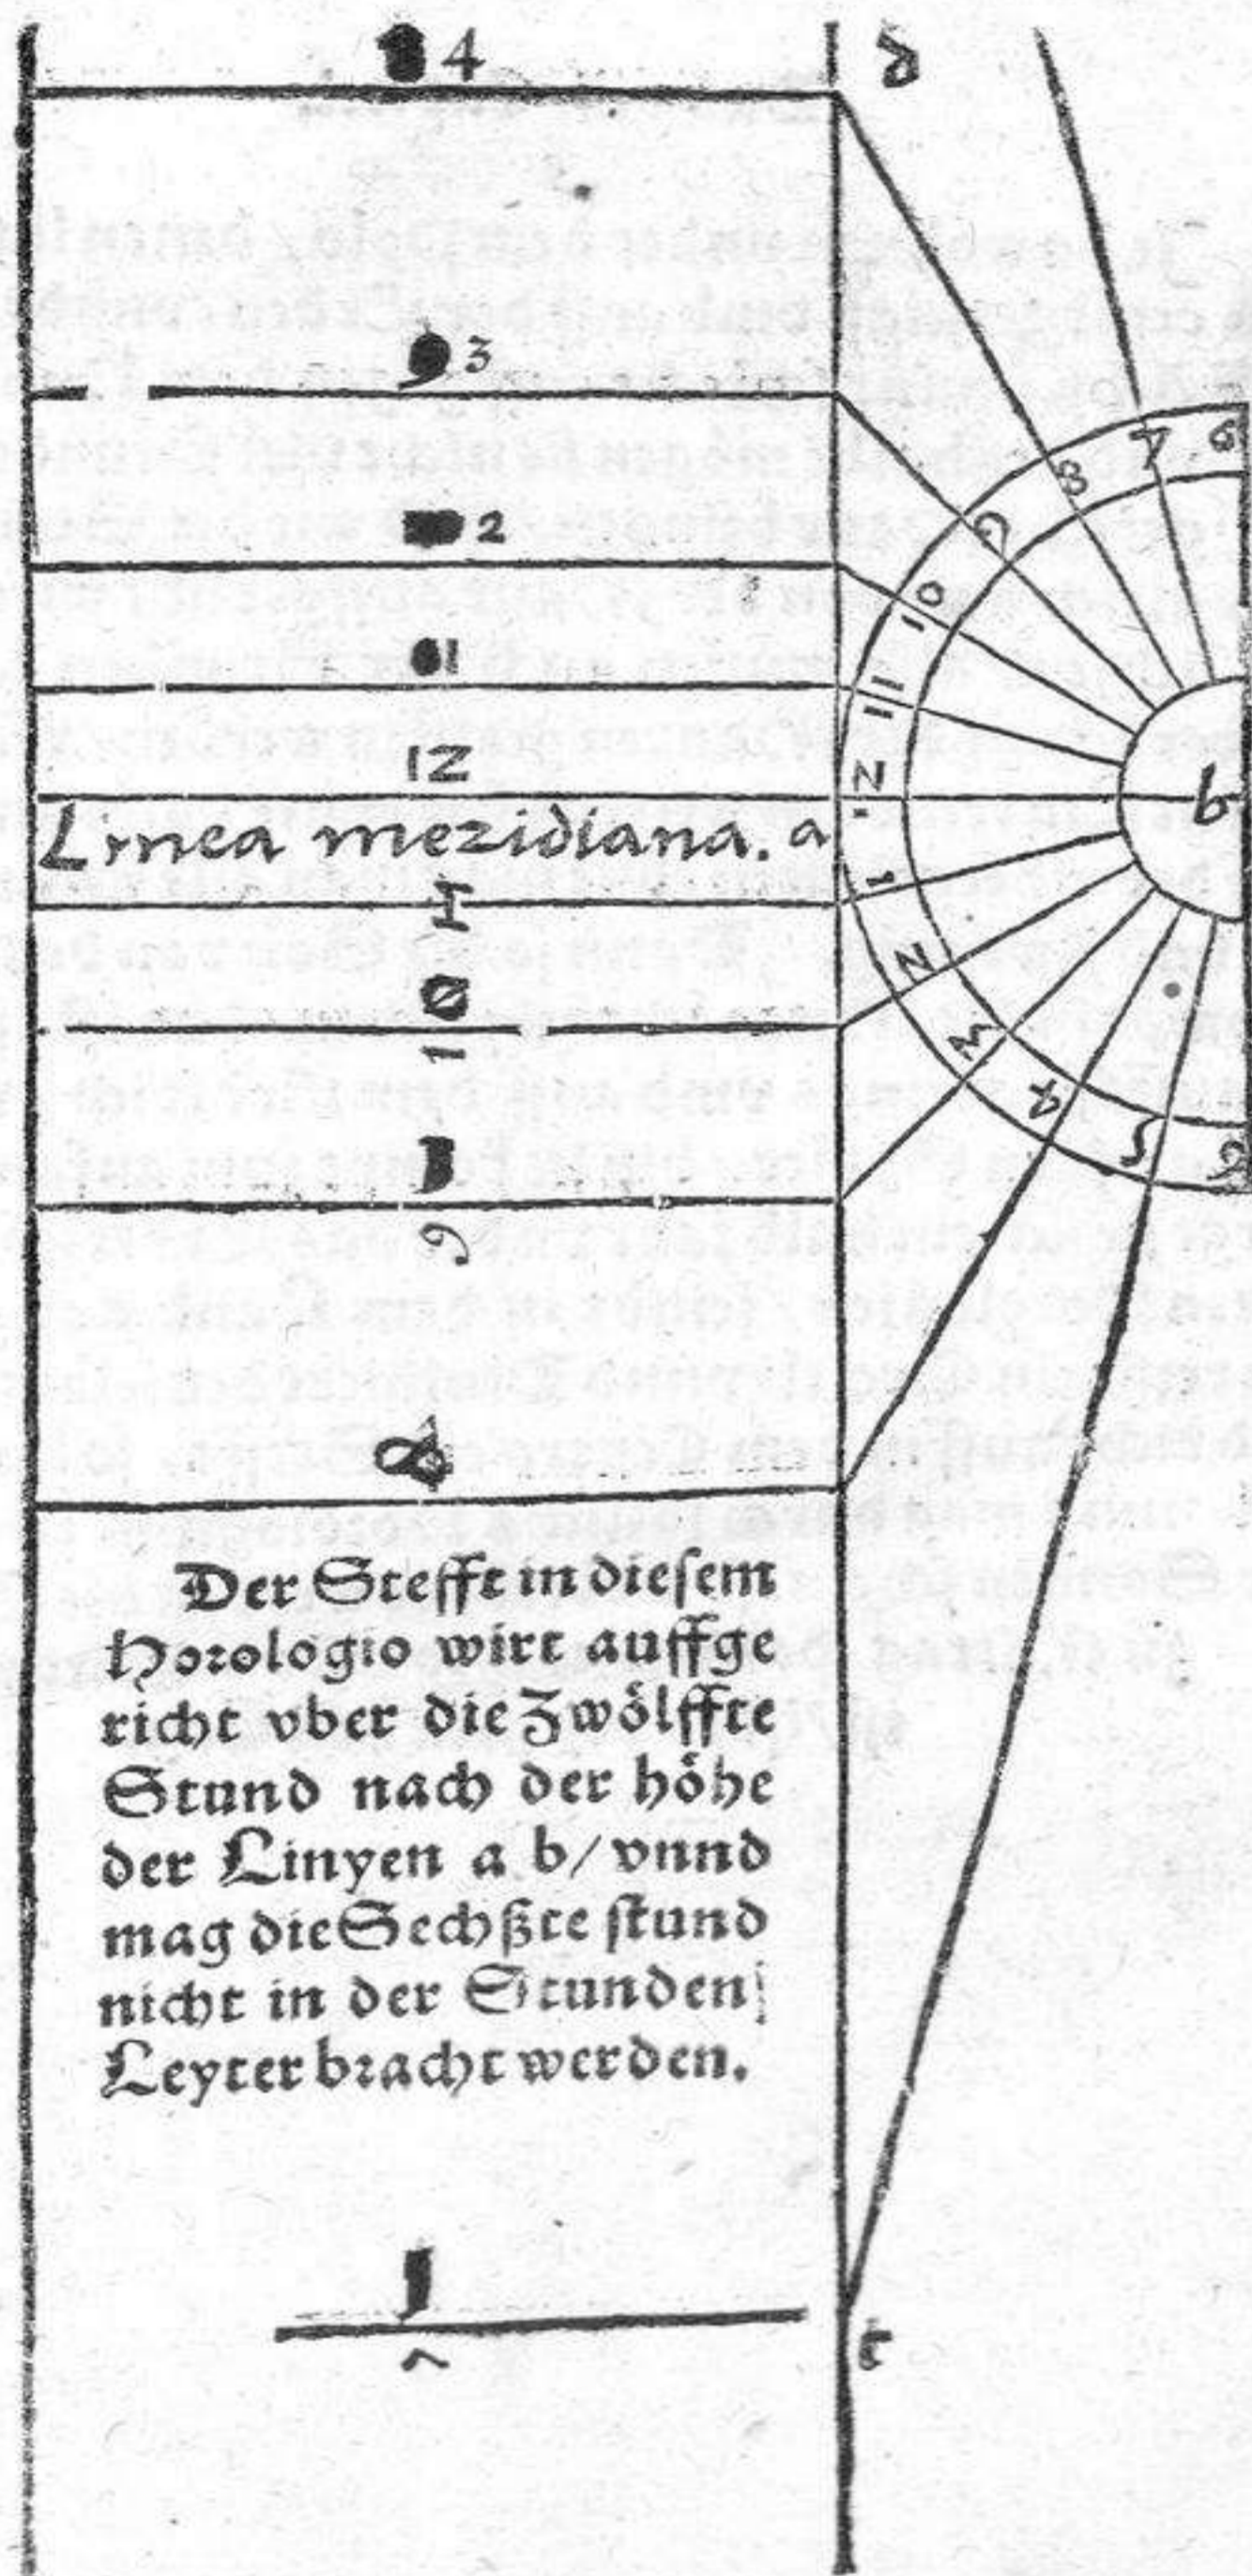 4 d
3
2
1
12
Linea meridiana. a
1
10
9
8
6
7
8
9
10
11
12
1
2
3
4
5
6
b
Der Stefft in diesem
Horologio wirt auffge
richt vber die Zwölffte
Stund nach der höhe
der Linyen a b/ vnnd
mag die Sechßte stund
nicht in der Stunden
Leyter bracht werden.
c